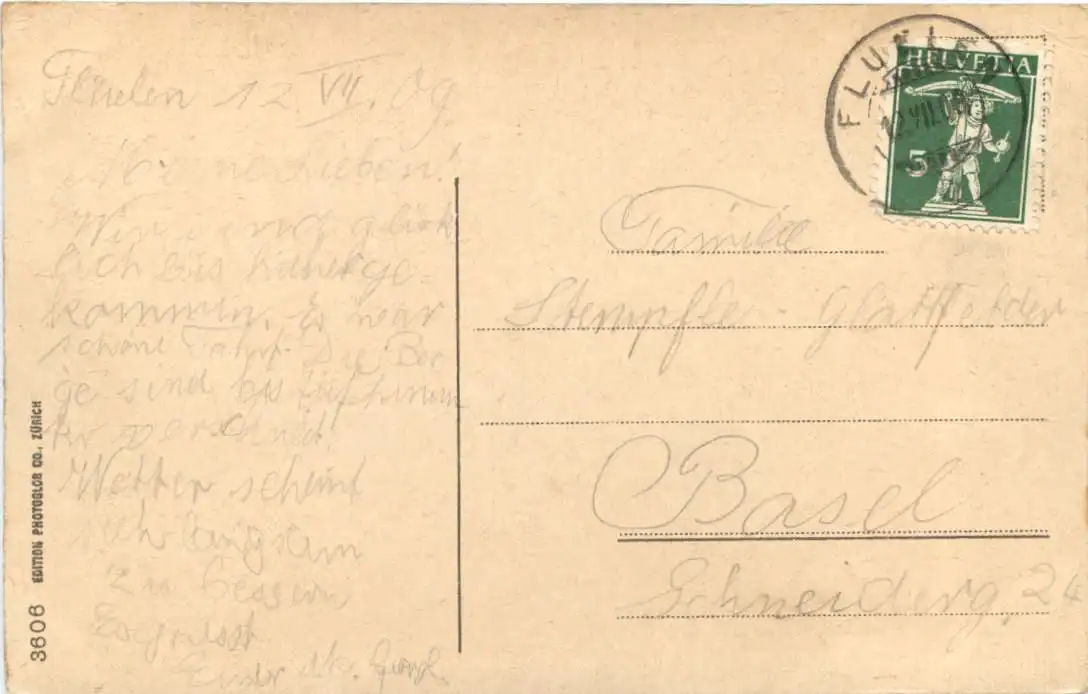 Flüelen 12 VII. 09.
Meine Lieben!
Wir sind glück
lich bis hieherge-
kommen. Es war
schöne Fahrt. Die Ber
ge sind bis tief hinun
ter verschneit.
Wetter scheint
sich langsam
zu bessern
Es grüsst
Euer
FLUELEN
12.VII.09
HELVETIA
5
Familie
Stempfle-Glattfelder
Basel
Schneiderg. 24
EDITION PHOTOGLOB CO., ZÜRICH
3606